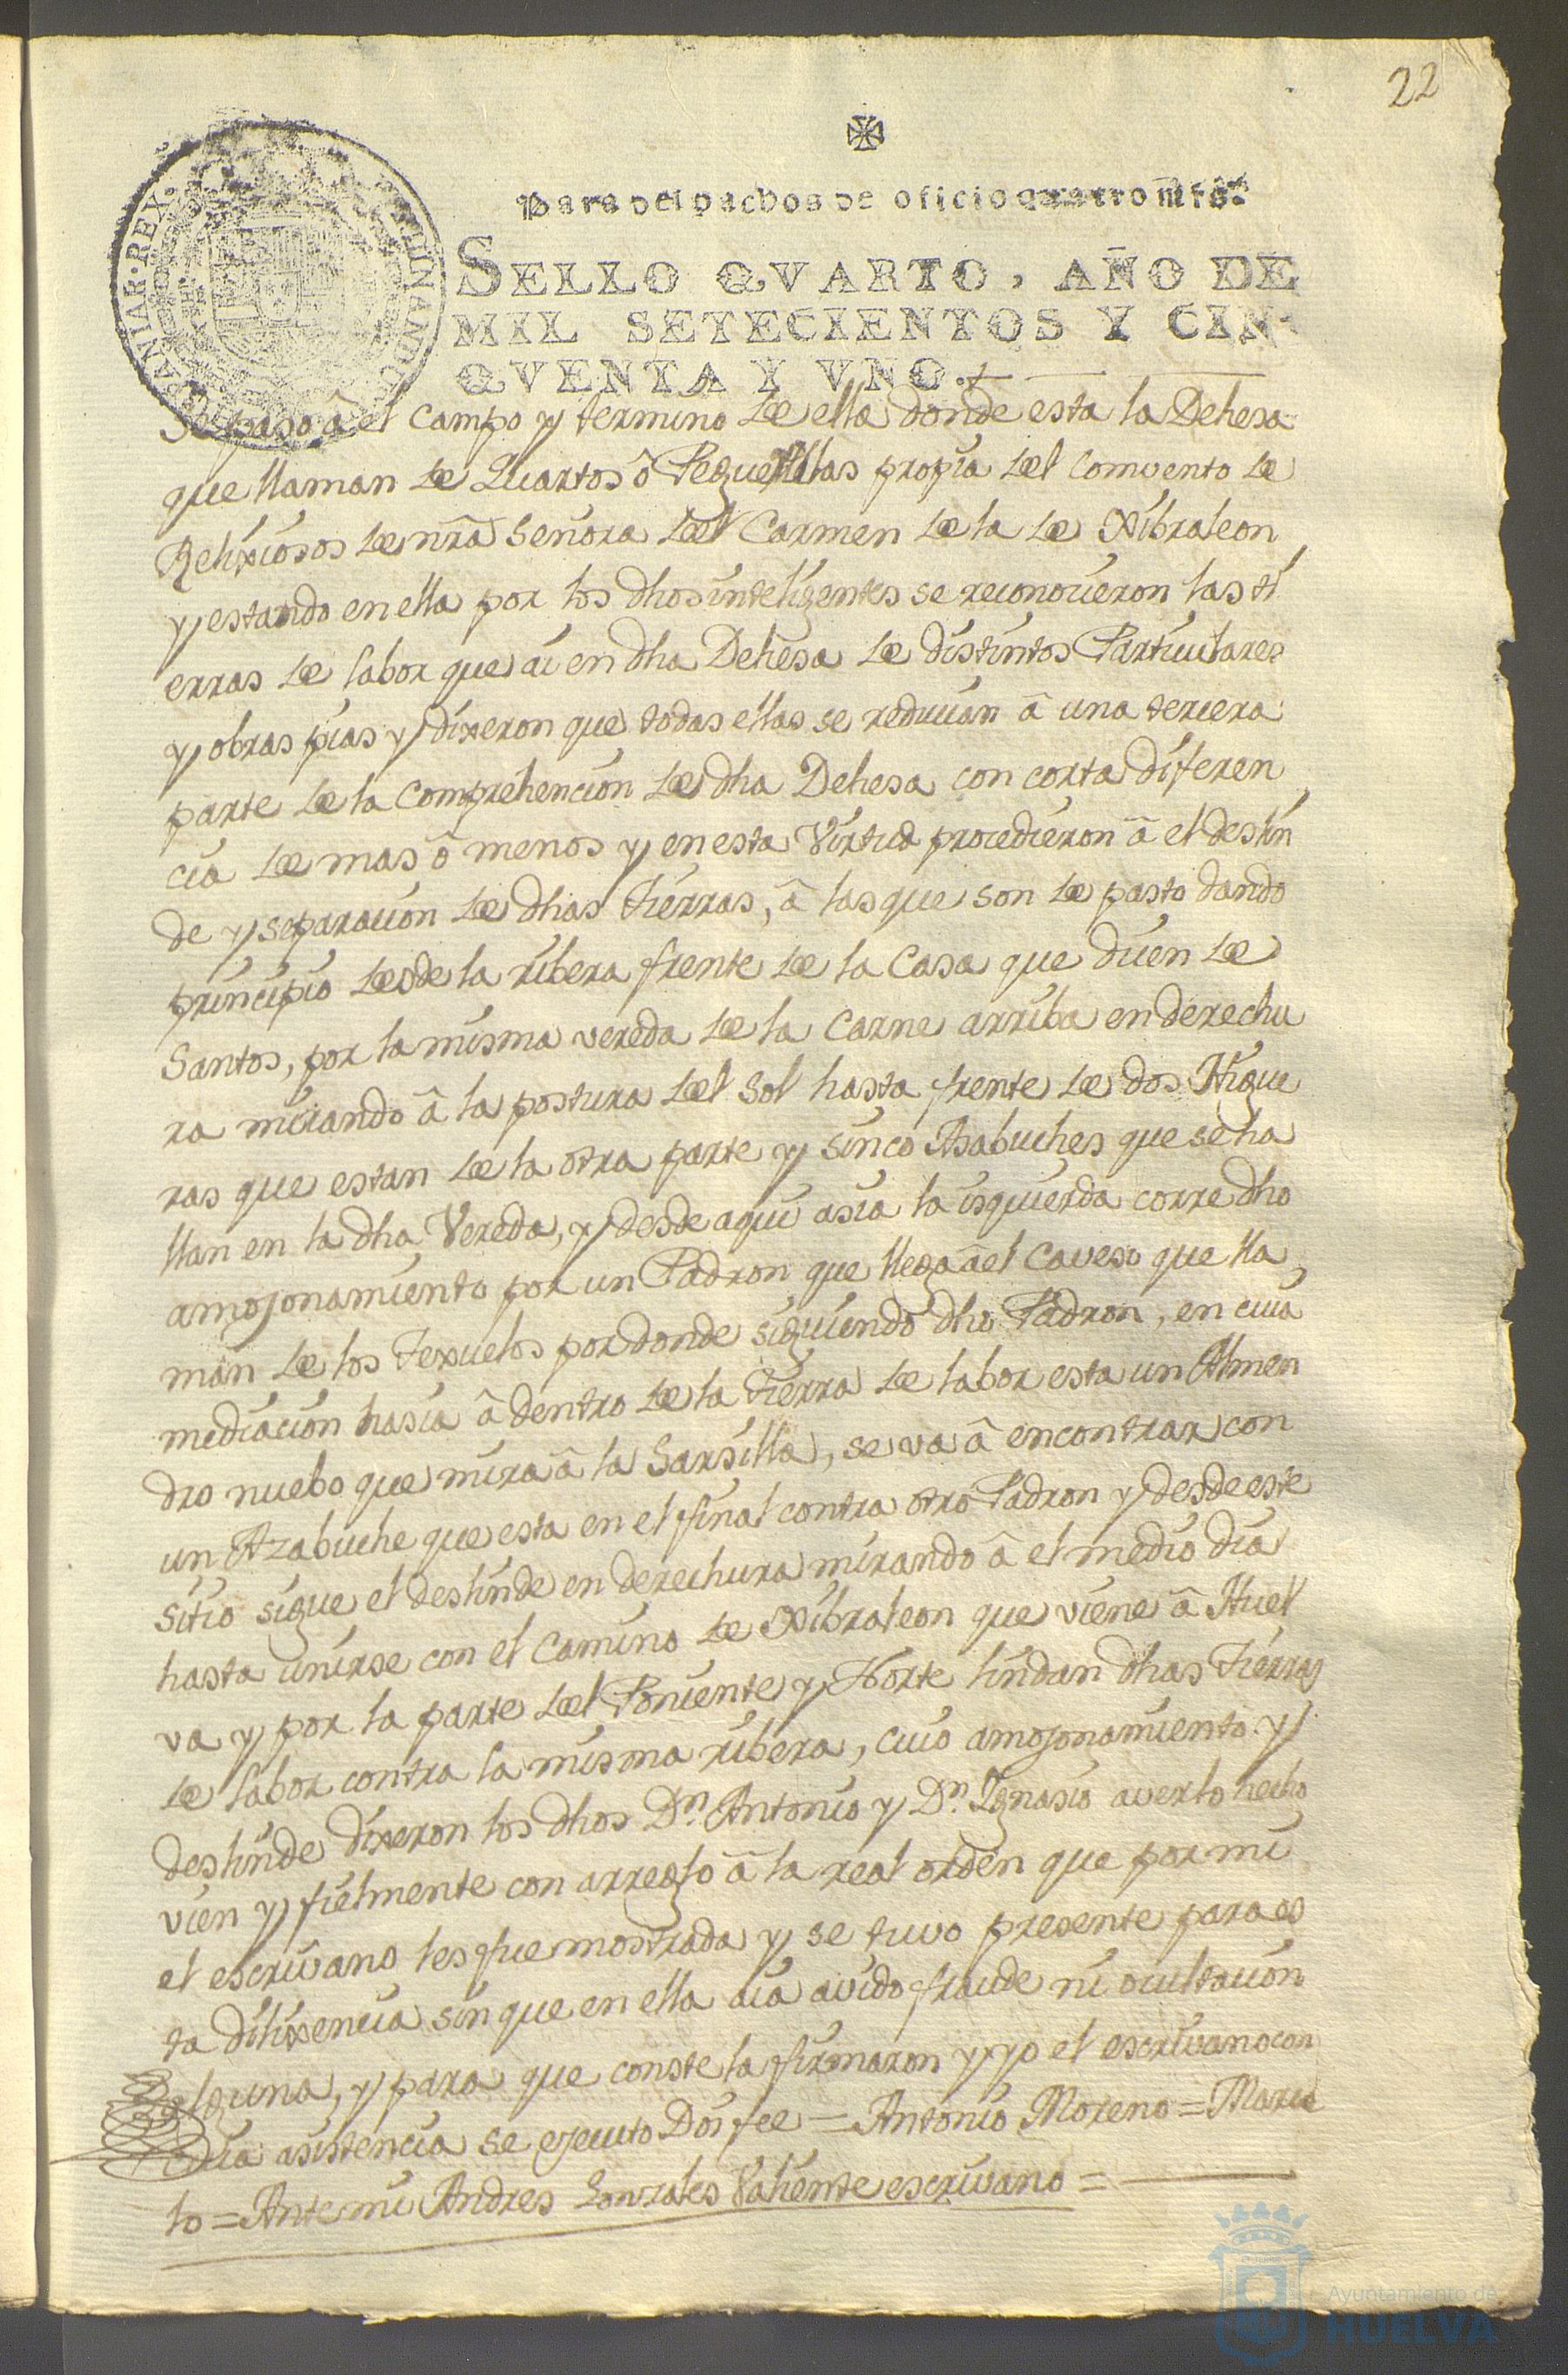 22
Para despachos de oficio quatro mrs.
SELLO QVARTO, AÑO DE
MIL SETECIENTOS Y CIN-
QVENTA Y VNO.
Se paso â el campo y termino de ella donde esta la Dehesa
que llaman de Quartos ô propia del comvento de
Relixiosos de nrã Señora del Carmen de la de Xibraleon
y estando en ella por los dhos inteligentes se reconocieron las ti
erras de labor que ai en dha Dehesa de distintos Particulares
y obras pias y dixeron que todas ellas se reducian â una tercera
parte de la comprehencion de dha Dehesa con corta diferen
cia de mas ô menos y en esta Virtud procedieron â el deslin
de y separacion de dhas tierras, â las que son de pasto dando
principio desde la ribera frente de la Casa que dicen de
Santos, por la misma vereda de la Carne arriba en derechu
ra mirando â la postura del Sol hasta frente de dos Higue
ras que estan de la otra parte y sinco Asabuches que se ha
llan en la dha Vereda, y desde aqui asia la isquierda corre dho
amojonamiento por un Padron que llega âel Caveso que lla
man de los texuelos por donde siguiendo dho Padron, en cuia
mediacion hasia â dentro de la tierra de labor esta un Almen
dro nuebo que mira â la Sarsilla, se va â encontrar con
un Azabuche que esta en el final contra otro Padron y desde este
sitio sigue el deslinde en derechura mirando â el medio dia
hasta unirse con el Camino de Xibraleon que viene â Huel
va y por la parte del Poniente y Norte lindan dhas tierras
de labor contra la misma ribera, cuio amojonamiento y
deslinde dixeron los dhos Dn. Antonio y Dn. Ignasio averlo hecho
vien y fielmente con arreglo â la real orden que por mi
el escrivano les fue mostrada y se tuvo presente para es
ta dilixencia sin que en ella aia avido fraude ni ocultacion
alguna, y para que conste la firmaron y yo el escrivano con
cuia asistencia se ejecuto Doi fee = Antonio Moreno = Marce
lo = Ante mi Andres Gonzales Valiente escrivano =
Ayuntamiento de
HUELVA